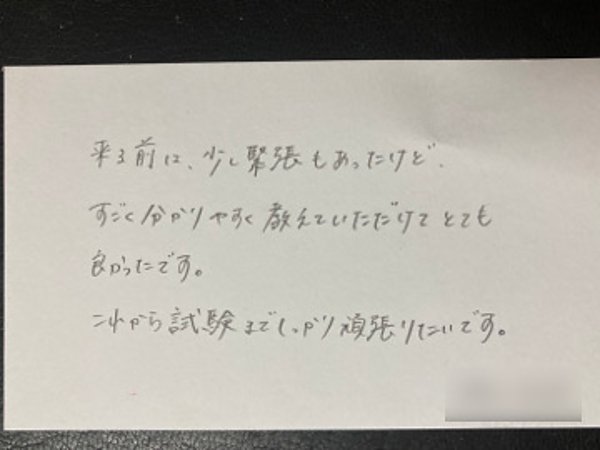 来る前は、少し緊張もあったけど、
すごく分かりやすく教えていただけてとても
良かったです。
これから試験までしっかり頑張りたいです。